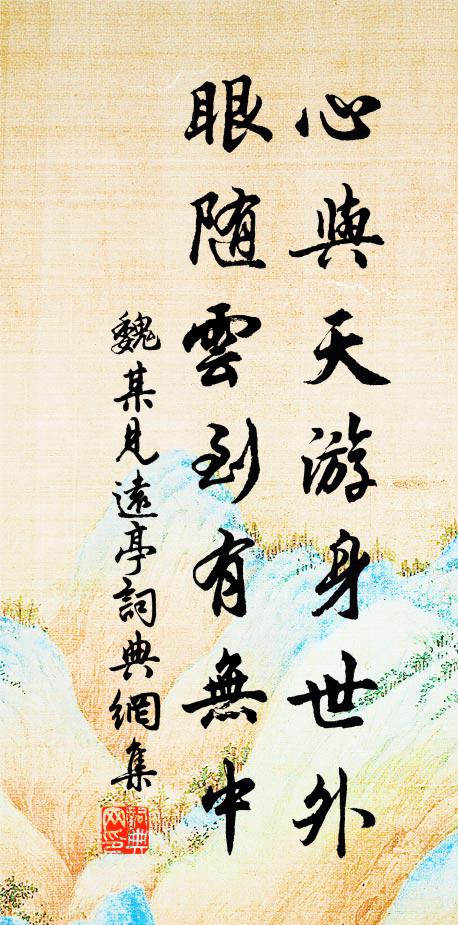 心與天游身世外
眼随雲到有無中
魏某見遠亭詞典網集
詞典网印